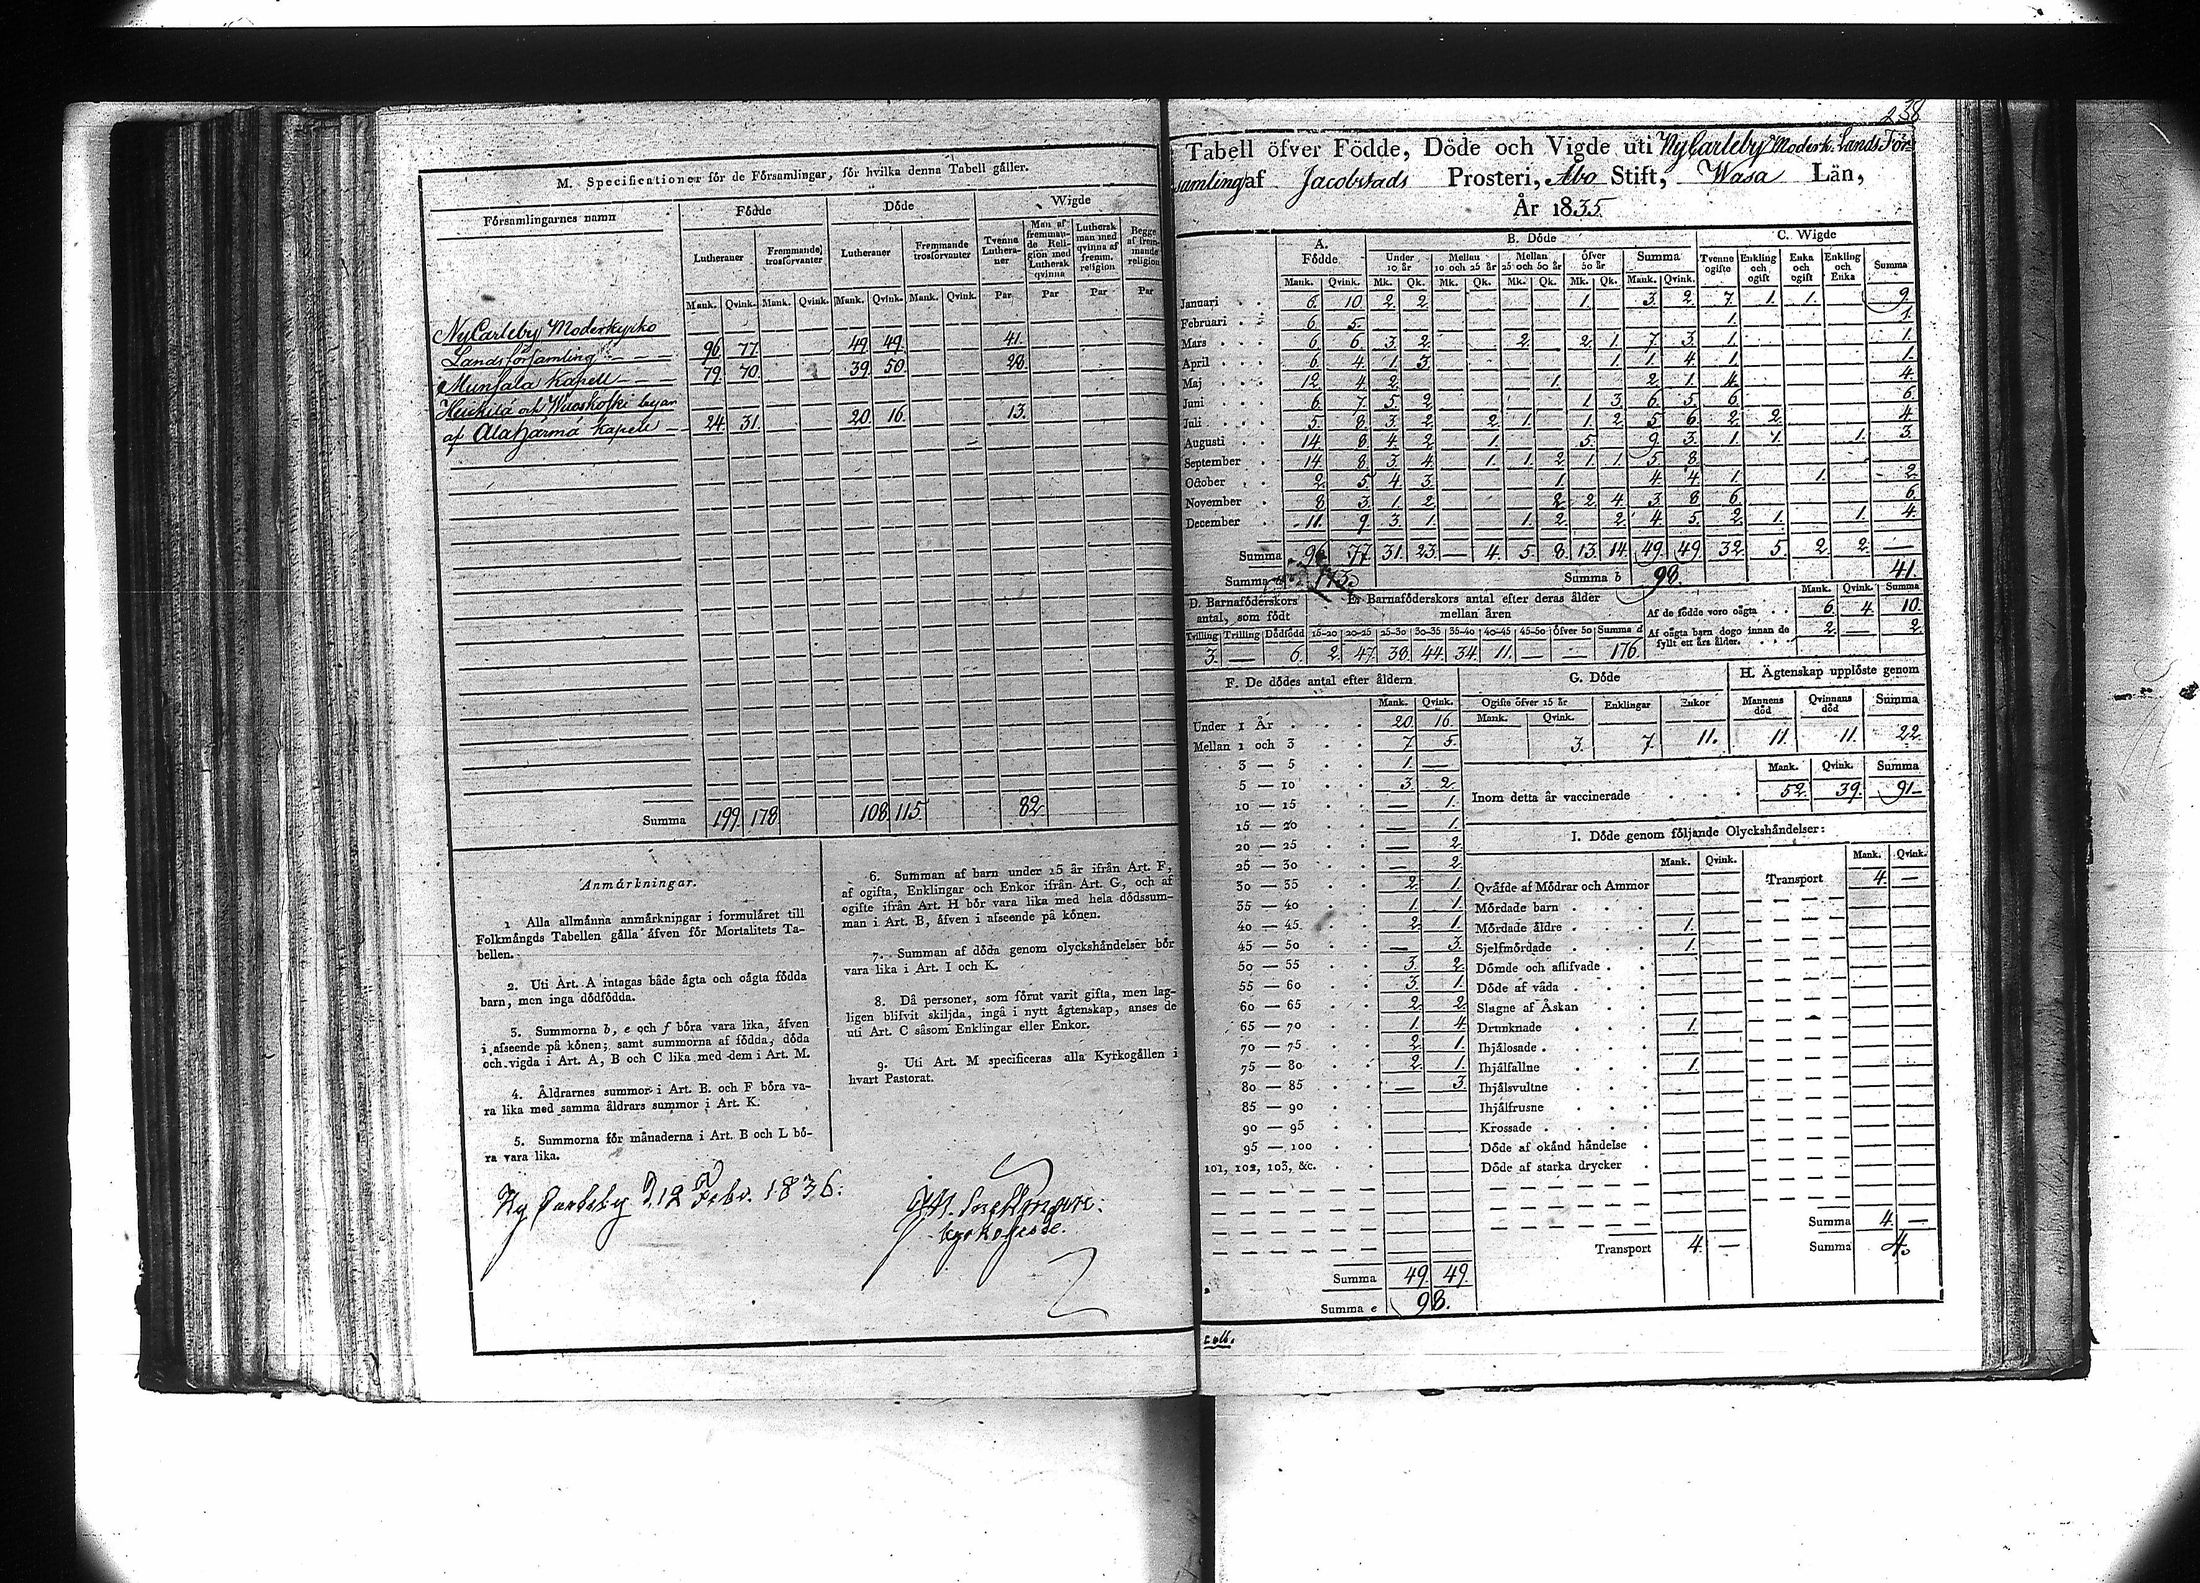 M. Specificationer för de Församlingar, för hvilka denna Tabell gäller.
Församlingarnes namn | Födde | Döde | Wigde
Lutheraner | Fremmande trosförvanter | Lutheraner | Fremmande trosförvanter | Tvenne Lutheraner | Man af fremmande Religion med Luthersk qvinna | Luthersk man med qvinna af fremm. religion | Begge af fremmande religion
Mank. Qvink. Mank. Qvink. Mank. Qvink. Mank. Qvink. Par Par Par Par
NyCarleby Moderkyrko
Landsförsamling 96 77 49 49 41.
Munsala Kapell 79 70 39 50 28
Heickilä och Wuoskoski byar
af Alahärmä Kapell 24 31 20 16 13
Summa 199 178 108 115 82
Anmärkningar.
1 Alla allmänna anmärkningar i formuläret till
Folkmängds Tabellen gälla äfven för Mortalitets Ta-
bellen.
2. Uti Art. A intagas både ägta och oägta födda
barn, men inga dödfödda.
3. Summorna b, e och f böra vara lika, äfven
i afseende på könen; samt summorna af födda, döda
och vigda i Art. A, B och C lika med dem i Art. M.
4. Åldrarnes summor i Art. B. och F böra va-
ra lika med samma åldrars summor i Art. K.
5. Summorna för månaderna i Art. B och L bö-
ra vara lika.
6. Summan af barn under 15 år ifrån Art. F,
af ogifta, Enklingar och Enkor ifrån Art. G, och af
ogifte ifrån Art. H bör vara lika med hela dödssum-
man i Art. B, äfven i afseende på könen.
7. Summan af döda genom olyckshändelser bör
vara lika i Art. I och K.
8. Då personer, som förut varit gifta, men lag-
ligen blifvit skiljda, ingå i nytt ägtenskap, anses de
uti Art. C såsom Enklingar eller Enkor.
9. Uti Art. M specificeras alla Kyrkogällen i
hvart Pastorat.
Ny Carleby d. 12 Febr. 1836.
Snellman.
Kyrkoherde.
238
Tabell öfver Födde, Döde och Vigde uti NyCarleby Moderk. Lands För-
samling af Jacobstads Prosteri, Åbo Stift, Wasa Län,
År 1835
A. Födde | B. Döde | C. Wigde
Under 10 år | Mellan 10 och 25 år | Mellan 25 och 50 år | Öfver 50 år | Summa | Tvenne ogifte | Enkling och ogift | Enka och ogift | Enkling och Enka | Summa
Mank. Qvink. Mk. Qk. Mk. Qk. Mk. Qk. Mk. Qk. Mank. Qvink.
Januari 6. 10 2. 2 1. 3. 2. 7. 1. 1. 9.
Februari 6. 5. 1. 1.
Mars 6 6. 3. 2. 2. 2. 1. 7. 3. 1. 1.
April 6. 4. 1. 3. 1. 1. 4. 1. 1.
Maj 12. 4. 2. 1. 2. 1. 4. 4.
Juni 6. 7. 5. 2. 1. 3. 6. 5. 6. 6.
Juli 5. 8. 3. 2. 2. 1. 1. 2. 5. 6. 2. 2. 4.
Augusti 14. 8 4. 2. 1. 5. 9. 3. 1. 1. 1. 3.
September 14. 8. 3. 4. 1. 1. 2. 1. 1. 5. 8.
October 2. 5. 4 3. 1. 4. 4. 1. 1. 2.
November 8 3. 1. 2. 2. 2. 4. 3. 8 6. 6.
December 11. 9. 3. 1. 1. 2. 2. 4. 5. 2. 1. 1. 4.
Summa 96 77 31. 23. — 4. 5. 8. 13. 14. 49. 49 32. 5. 2. 2. —
Summa a 173. Summa b 98. 41.
D. Barnaföderskors antal, som födt
Tvilling Trilling Dödfödd
3. — 6.
E. Barnaföderskors antal efter deras ålder mellan åren
15-20 20-25 25-30 30-35 35-40 40-45 45-50 Öfver 50 Summa d
2. 47. 38. 44. 34. 11. — — 176.
Mank. Qvink. Summa
Af de födde voro oägta 6. 4. 10.
Af oägta barn dogo innan de fyllt ett års ålder. 2. — 2.
F. De dödes antal efter åldern.
Mank. Qvink.
Under 1 År 20. 16.
Mellan 1 och 3 7. 5.
3 — 5 1. —
5 — 10 3. 2.
10 — 15 — 1.
15 — 20 — 1.
20 — 25 — 2
25 — 30 — 2
30 — 35 2. 1.
35 — 40 1. 1.
40 — 45 2. 1.
45 — 50 — 3.
50 — 55 3. 2.
55 — 60 3. 1.
60 — 65 2. 2.
65 — 70 1. 4.
70 — 75 2. 1.
75 — 80 2. 1.
80 — 85 — 3.
85 — 90
90 — 95
95 — 100
101, 102, 103, &c.
Summa 49 49.
Summa e 98.
G. Döde
Ogifte öfver 15 år | Enklingar | Enkor
Mank. Qvink.
3. 7. 11.
H. Ägtenskap upplöste genom
Mannens död | Qvinnans död | Summa
11. 11. 22.
Mank. Qvink. Summa
Inom detta år vaccinerade 52. 39. 91
I. Döde genom följande Olyckshändelser:
Mank. Qvink. Mank. Qvink.
Qväfde af Mödrar och Ammor Transport 4. —
Mördade barn
Mördade äldre 1.
Sjelfmördade 1.
Dömde och aflifvade
Döde af våda
Slagne af Åskan
Drunknade 1.
Ihjälosade
Ihjälfallne 1.
Ihjälsvultne
Ihjälfrusne
Krossade
Döde af okänd händelse
Döde af starka drycker
Summa 4. —
Transport 4. — Summa 4.